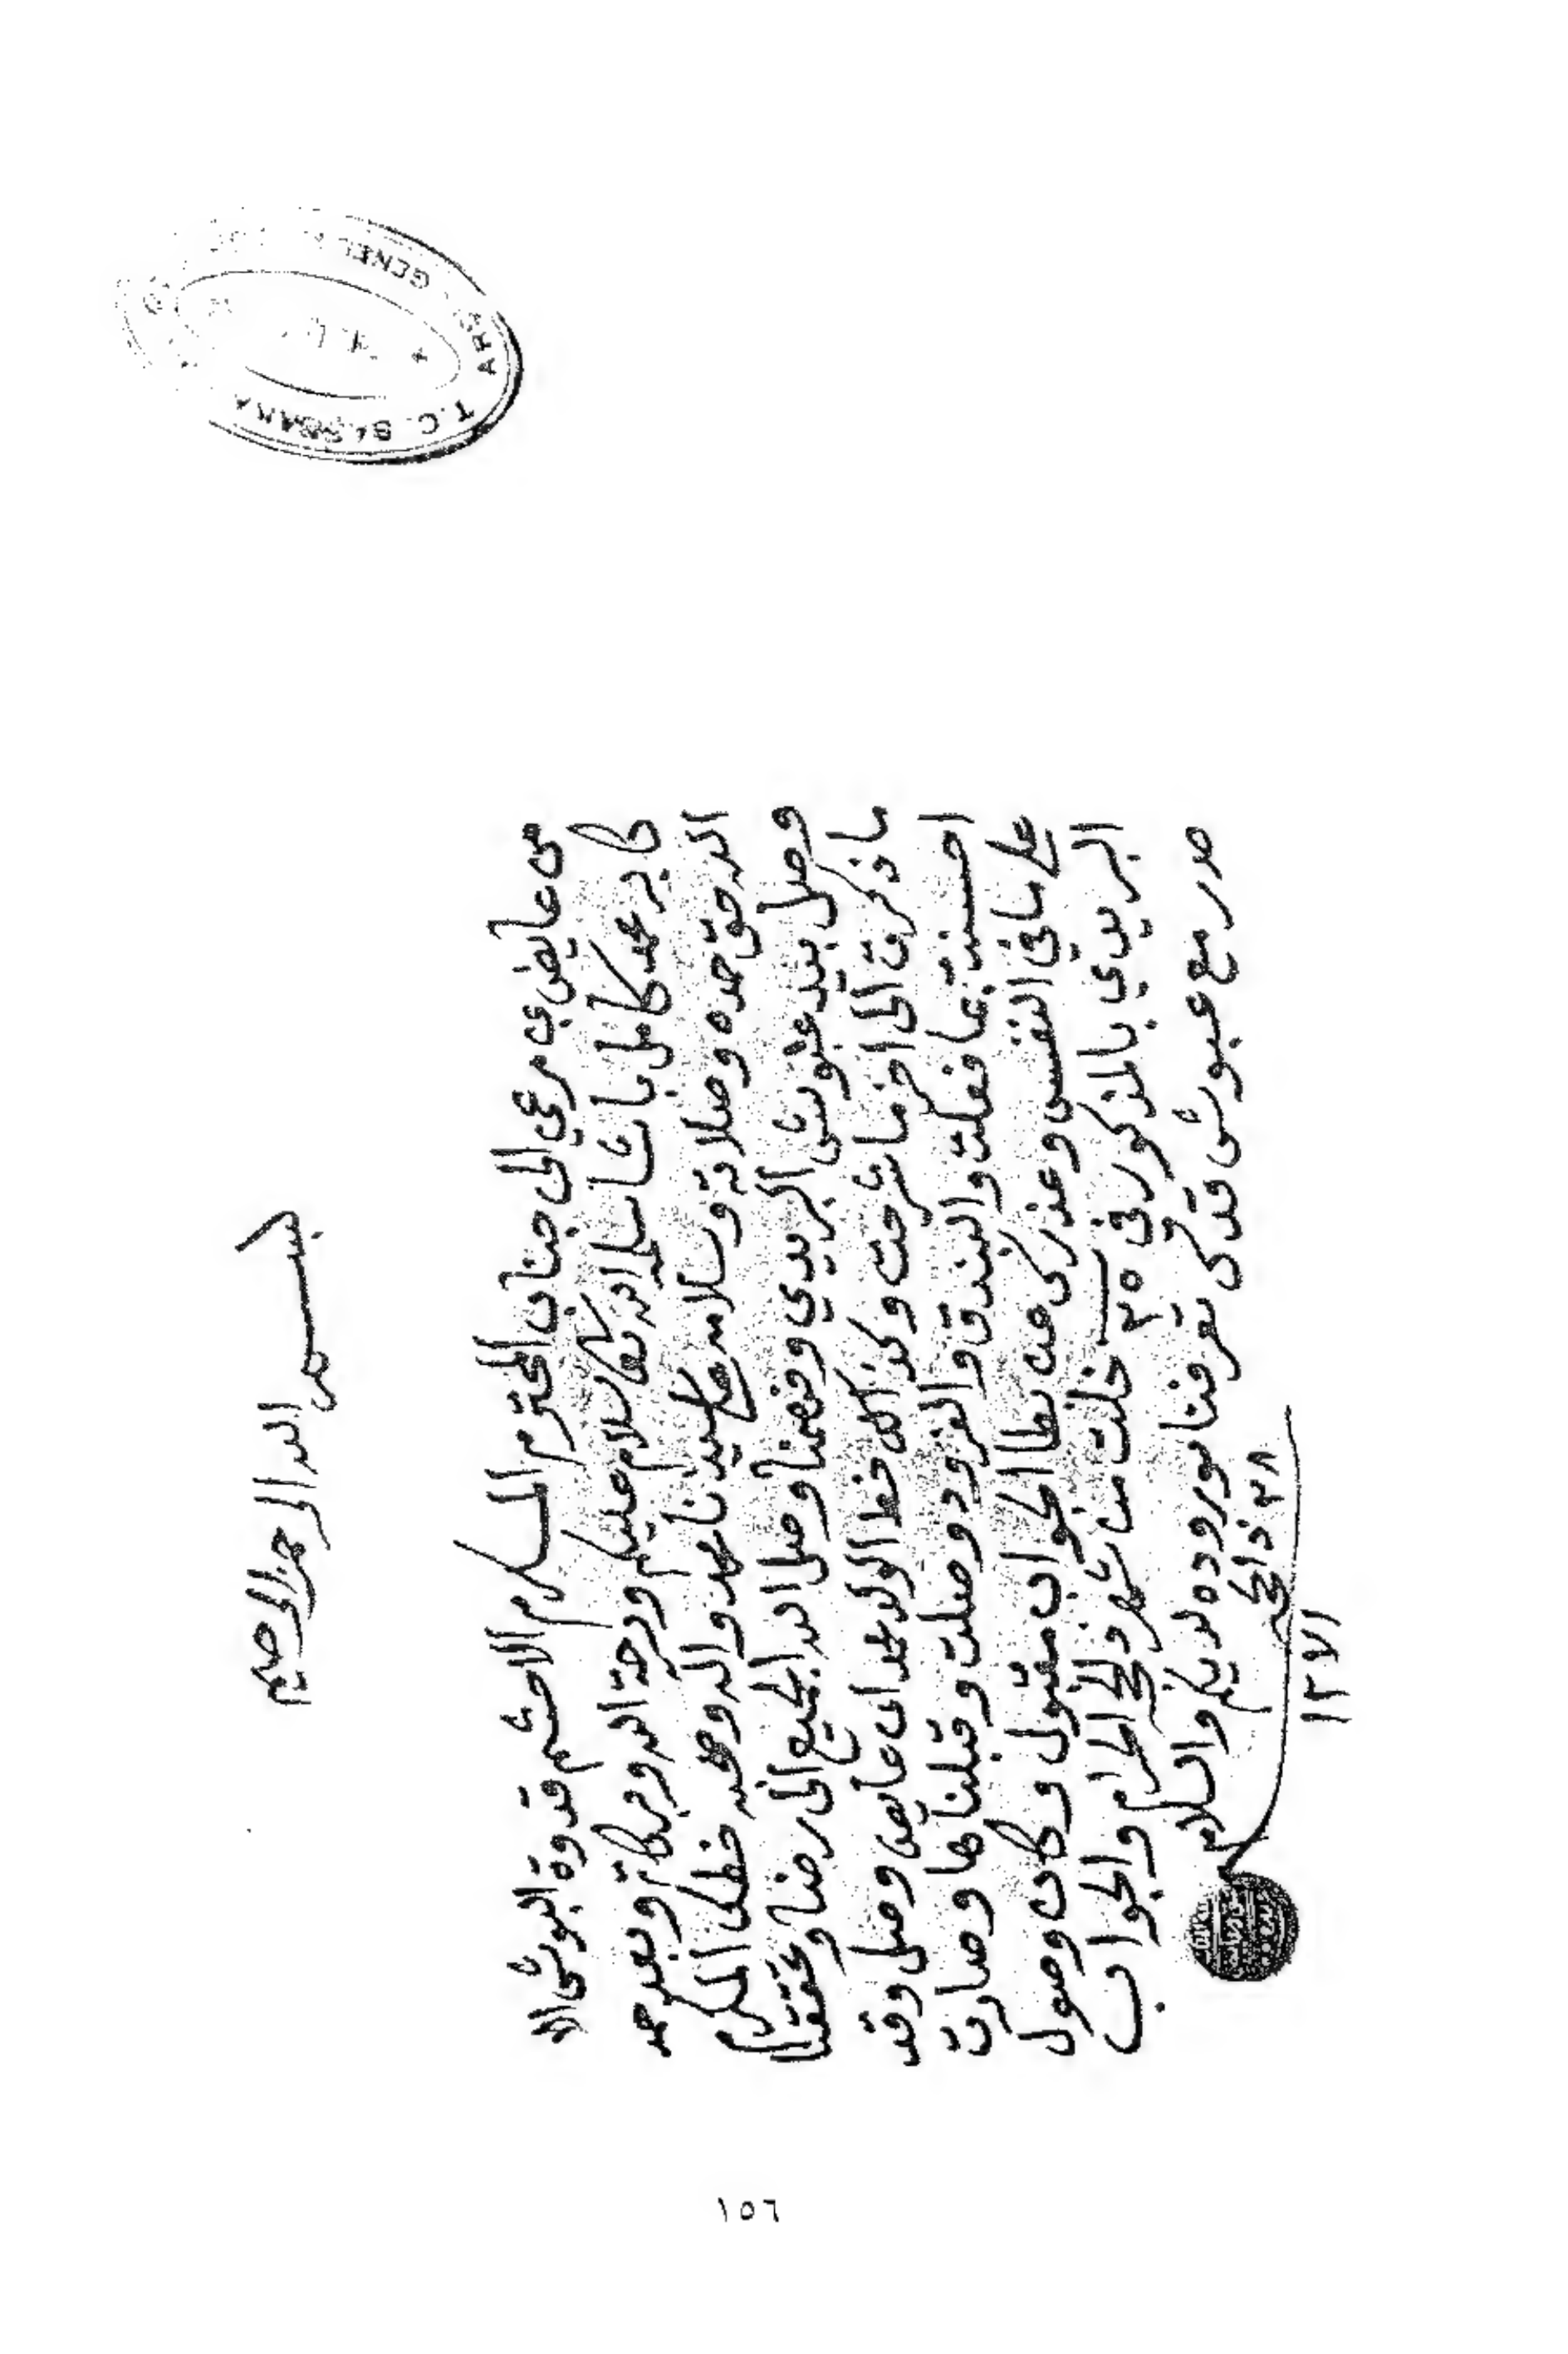 بسم الله الرحمن الرحيم
من عايض بن مرعي الى جناب المحترم المكرم الاحشم قدوة البوشى الا
كابر محمد كامل باشا سلمه الله تعا سلام عليكم ورحمة الله وبركاته وبعد حمد
الله حق حمده وصلاته وسلامه على سيدنا محمد واله وصحبه خطكم المكرم
وصل بيد عبوش البريدي وفهمنا وصل الله الجميع الى رضاه وتحققنا
ما ذكرت الى اخر ما شرحت وكذالك خط الولد محمد ابن عايض وصل وقد
احسنت بما فعلت والبندق والفرود وصلت وقبلناها وصارت
على ما في النفس وعذركم من بطا الجواب مقبول وكان وصول
البريدي بالمذكور في ٢٥ خلت من شهر ذي الحجة الحرام والجواب
صدر مع عبوش قدكم تعرفنا بوروده لديكم والسلام
٢٨ ذالحجه
١٢٧١
١٥٦
T.C. BAŞBAKA
GENEL